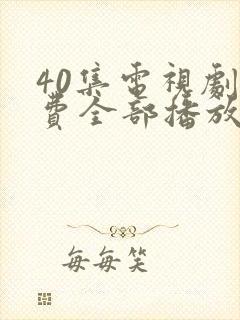 40集電視劇
費全部播放
每每笑